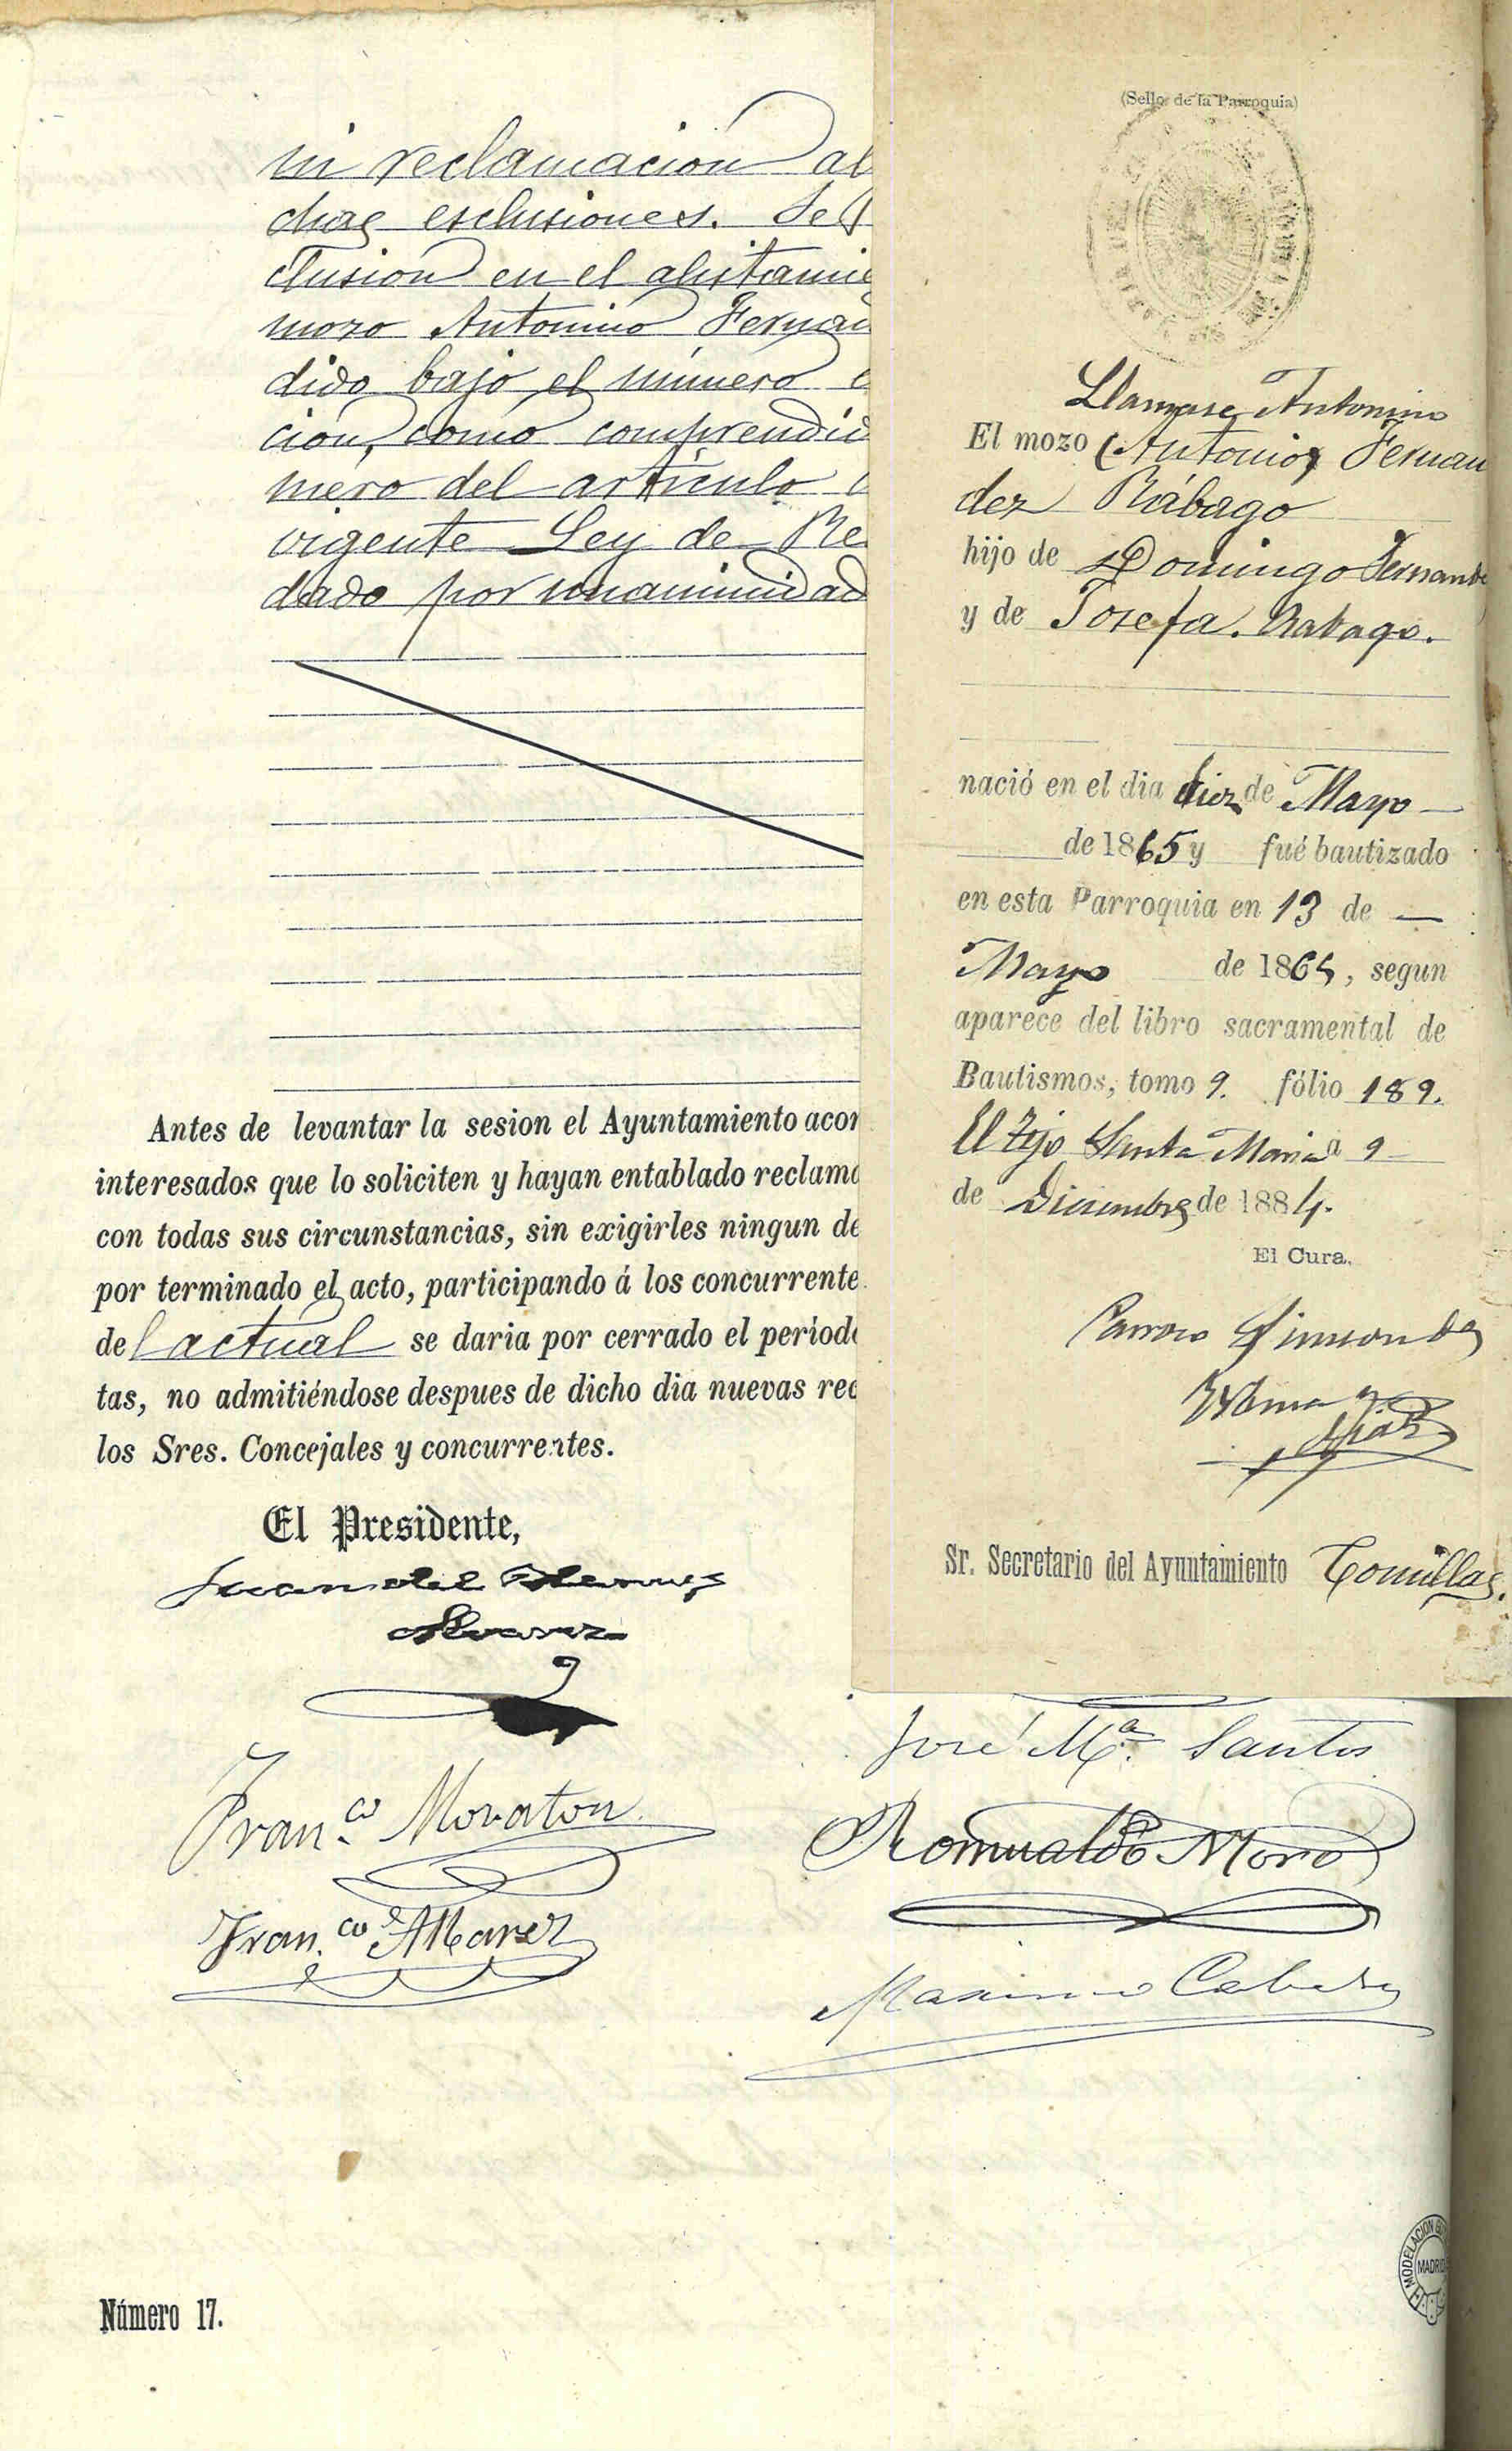 ni reclamacion al
chas esclusiones. Se
clusion en el alistamie
mozo Antonino Fernan
dido bajo el número
cion, como comprendid
mero del artículo
vigente Ley de Re
dado por unanimidad
Antes de levantar la sesion el Ayuntamiento acor
interesados que lo soliciten y hayan entablado reclama
con todas sus circunstancias, sin exigirles ningun de
por terminado el acto, participando á los concurrente
del actual se daria por cerrado el periodo
tas, no admitiéndose despues de dicho dia nuevas rec
los Sres. Concejales y concurrentes.
El Presidente,
Juan del
Alvarez
Fran.co Moraton
Fran.co Alvarez
Número 17.
(Sello de la Parroquia)
Llamase Antonino
El mozo (Antonio) Fernan
dez Rábago
hijo de Domingo Fernande
y de Josefa Rabago.
nació en el dia diez de Mayo
de 1865 y fué bautizado
en esta Parroquia en 13 de
Mayo de 1865, segun
aparece del libro sacramental de
Bautismos, tomo 9. fólio 189.
El Tejo Santa Maria a 9
de Diciembre de 1884.
El Cura.
Parroco
Sr. Secretario del Ayuntamiento Comillas.
José M.a Santos
Romualdo Moro
Maximo
MODELACION
MADRID